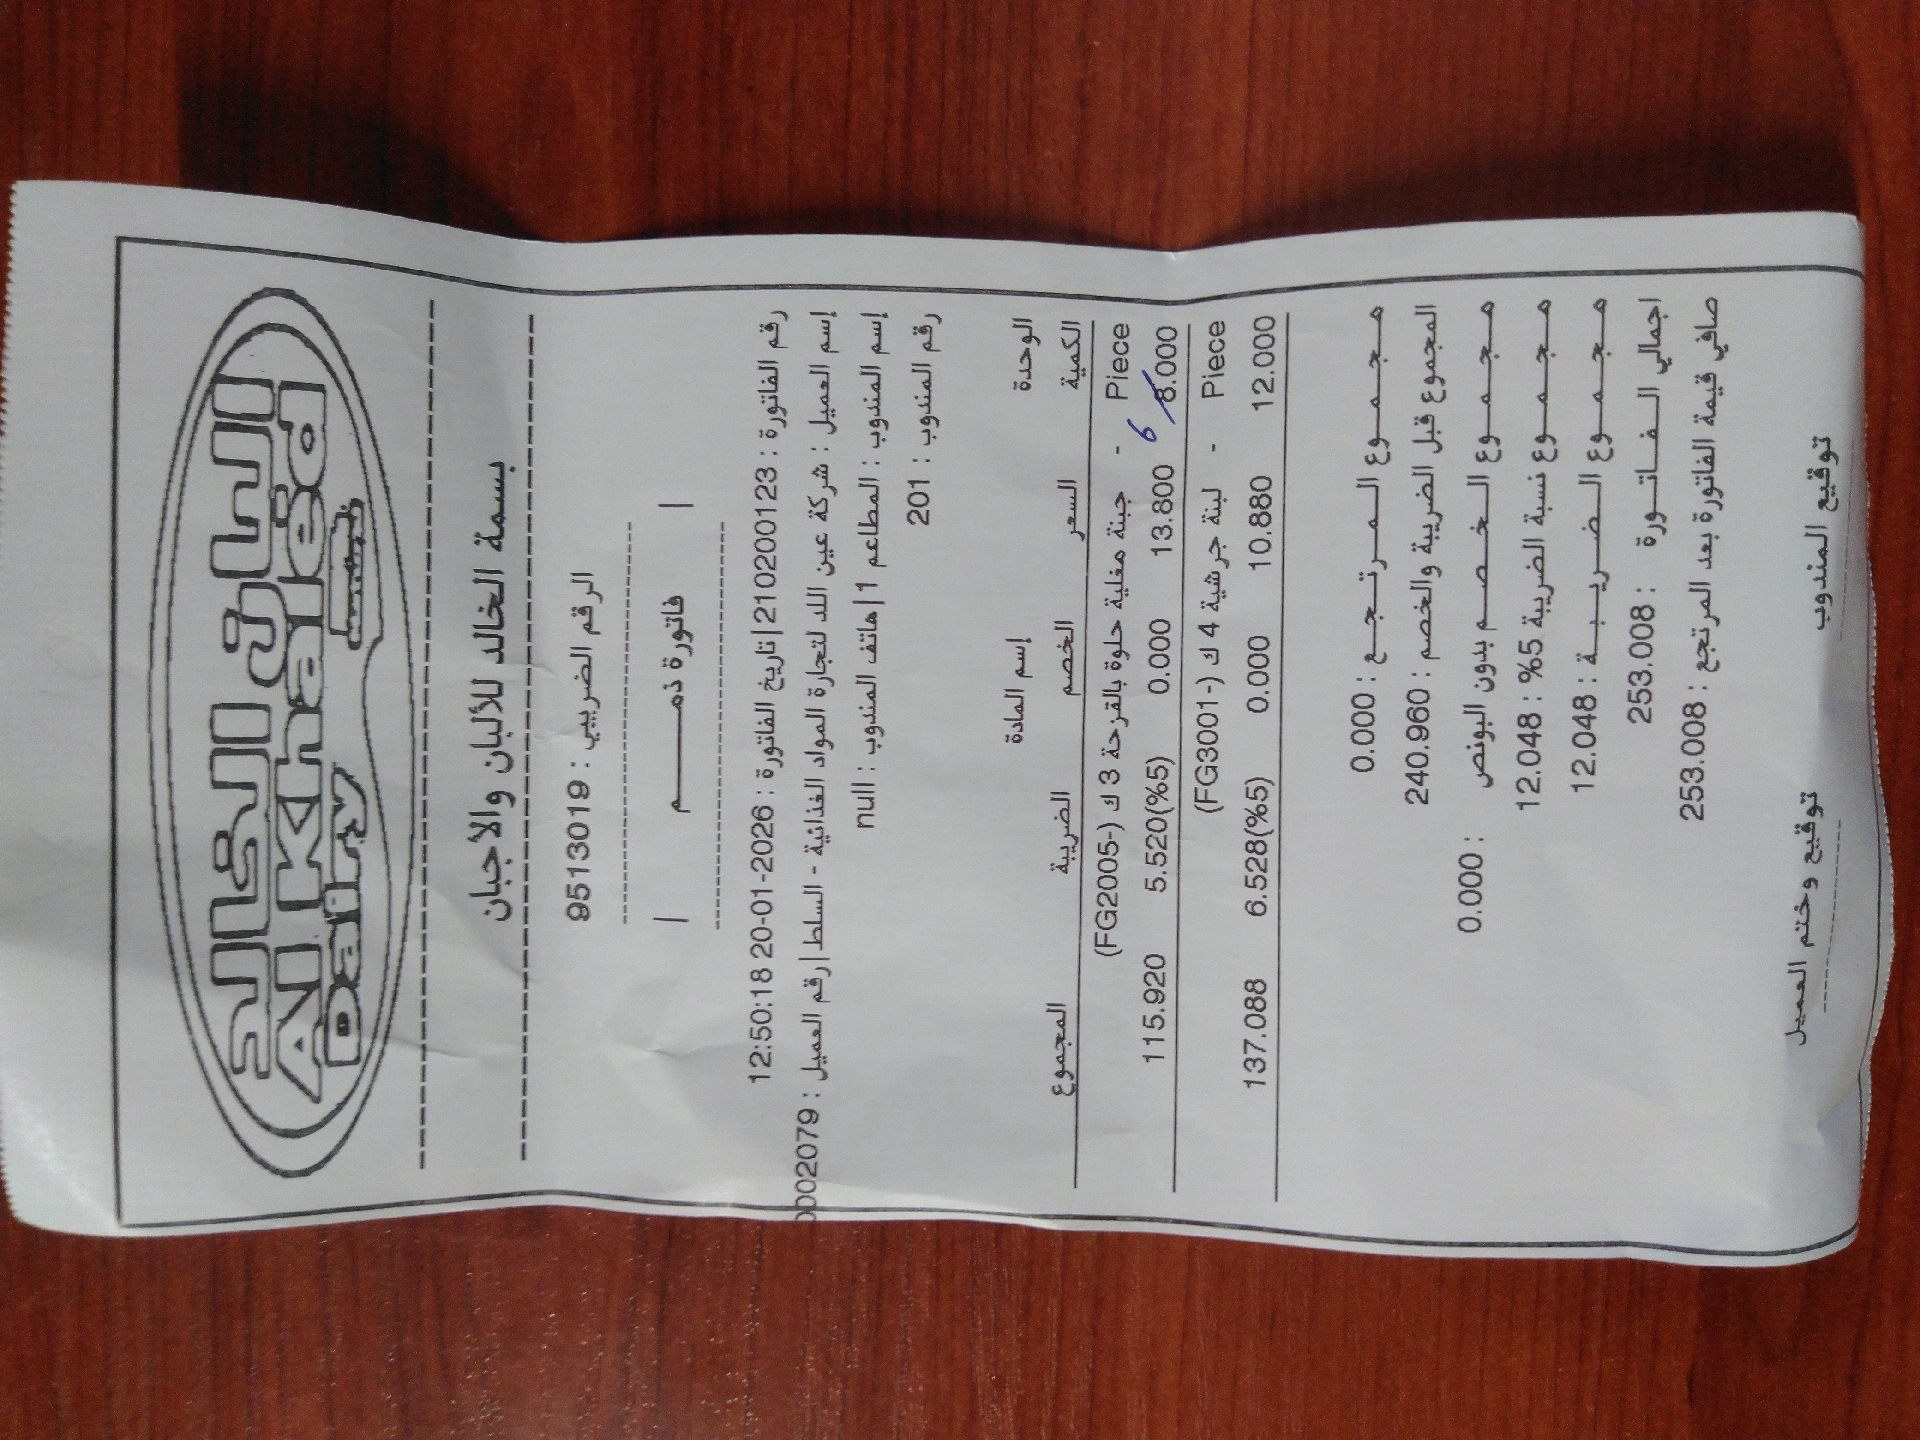 البان الخالد
Al Khaled
Dairy
بسمة الخالد للألبان والاجبان
الرقم الضريبي : 9513019
| فاتورة ذمــــــم |
رقم الفاتورة : 210200123|تاريخ الفاتورة : 2026-01-20 12:50:18
إسم العميل : شركة عين اللد لتجارة المواد الغذائية - السلط|رقم العميل : 0002079
إسم المندوب : المطاعم 1|هاتف المندوب : null
رقم المندوب : 201
الوحدة إسم المادة
الكمية السعر الخصم الضريبة المجموع
Piece - جبنة مغلية حلوة بالقزحة 3 ك (-FG2005)
8.000 6 13.800 0.000 5.520(%5) 115.920
Piece - لبنة جرشية 4 ك (-FG3001)
12.000 10.880 0.000 6.528(%5) 137.088
مـجـمـوع الـمـرتـجـع : 0.000
المجموع قبل الضريبة والخصم : 240.960
مـجـمـوع الـخـصـم بدون البونص : 0.000
مـجـمـوع نسبة الضريبة 5% : 12.048
مـجـمـوع الـضـريـبـة : 12.048
اجمالي الـفـاتـورة : 253.008
صافي قيمة الفاتورة بعد المرتجع : 253.008
توقيع المندوب توقيع وختم العميل